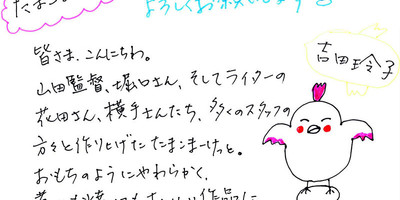 よろしくお願いします
吉田玲子
皆さま、こんにちわ。
山田監督、堀口さん、そしてライターの
花田さん、横手さんたち、多くのスタッフの
方々と作りとげた たまこまーけっと。
おもちのようにやわらかく、